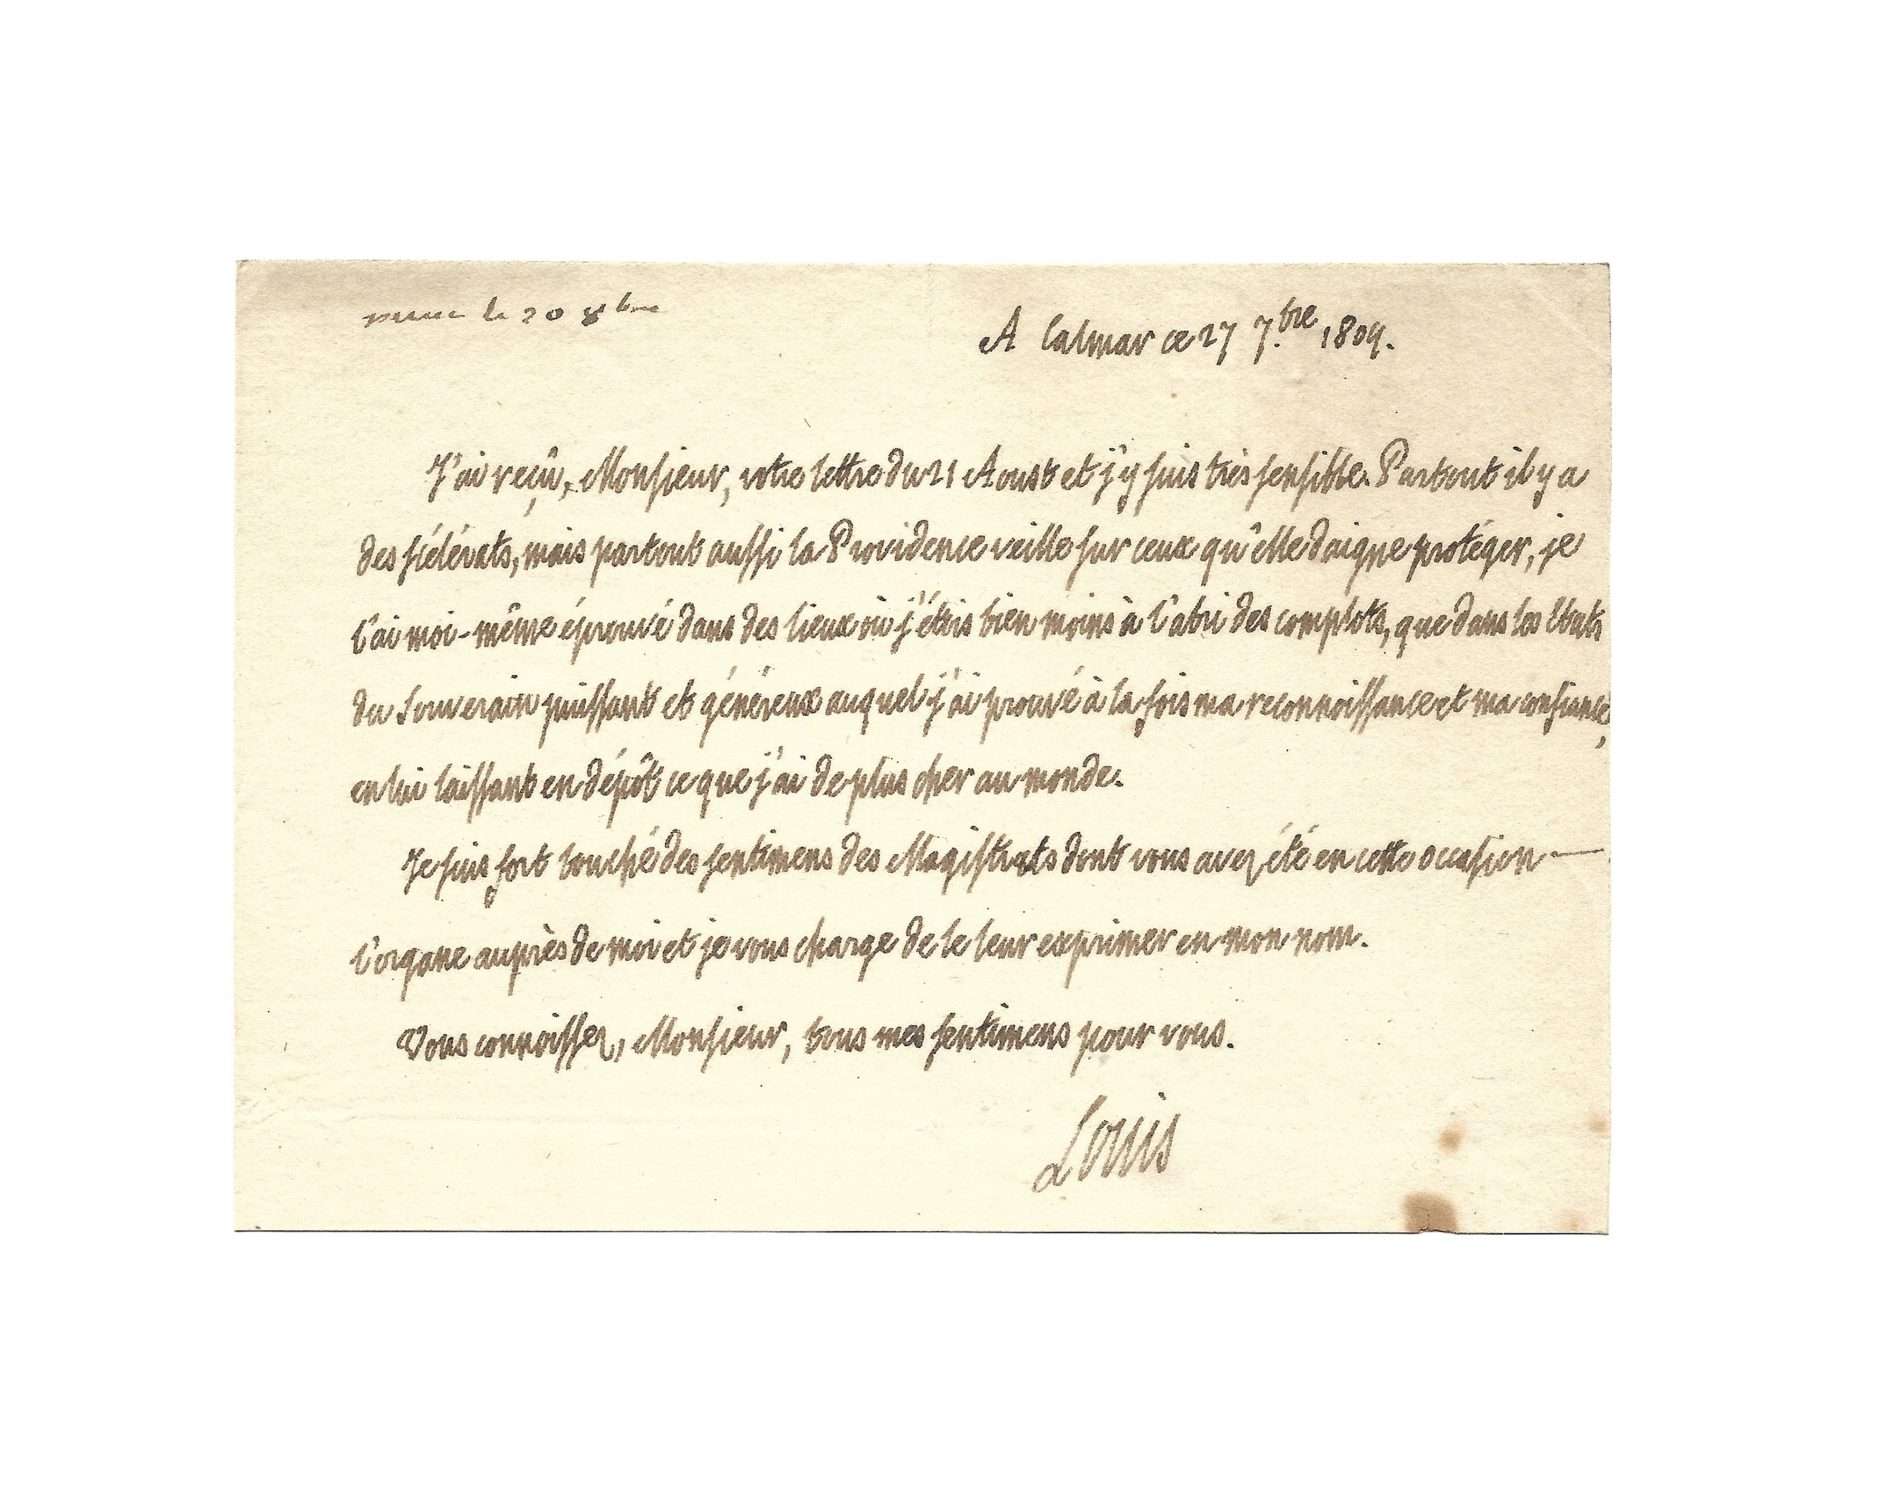 le 20 8bre
A Calmar ce 27 7.bre 1809.
J'ai reçû, Monsieur, votre lettre du 21 Aoust et j'y suis très sensible. Partout il y a
des scélérats, mais partout aussi la Providence veille sur ceux qu'elle daigne protéger, je
l'ai moi-même éprouvé dans des lieux où j'étois bien moins à l'abri des complots, que dans les Etats
du Souverain puissant et généreux auquel j'ai prouvé à la fois ma reconnoissance et ma confiance,
en lui laissant en dépôt ce que j'ai de plus cher au monde.
Je suis fort touché des sentimens des Magistrats dont vous avez été en cette occasion
l'organe auprès de moi et je vous charge de le leur exprimer en mon nom.
Vous connoissez, Monsieur, tous mes sentimens pour vous.
Louis